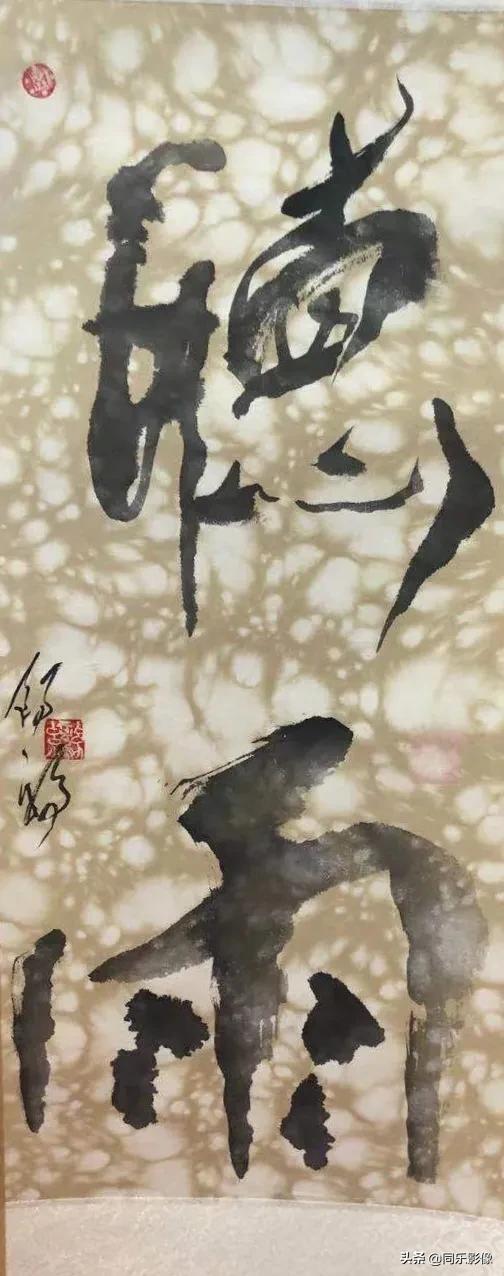 聽
雨
头条 @同乐影像